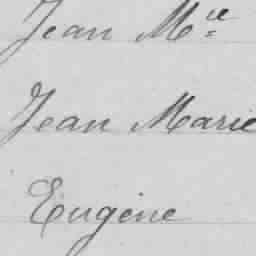 Jean Mcie
Jean Marie
Eugène